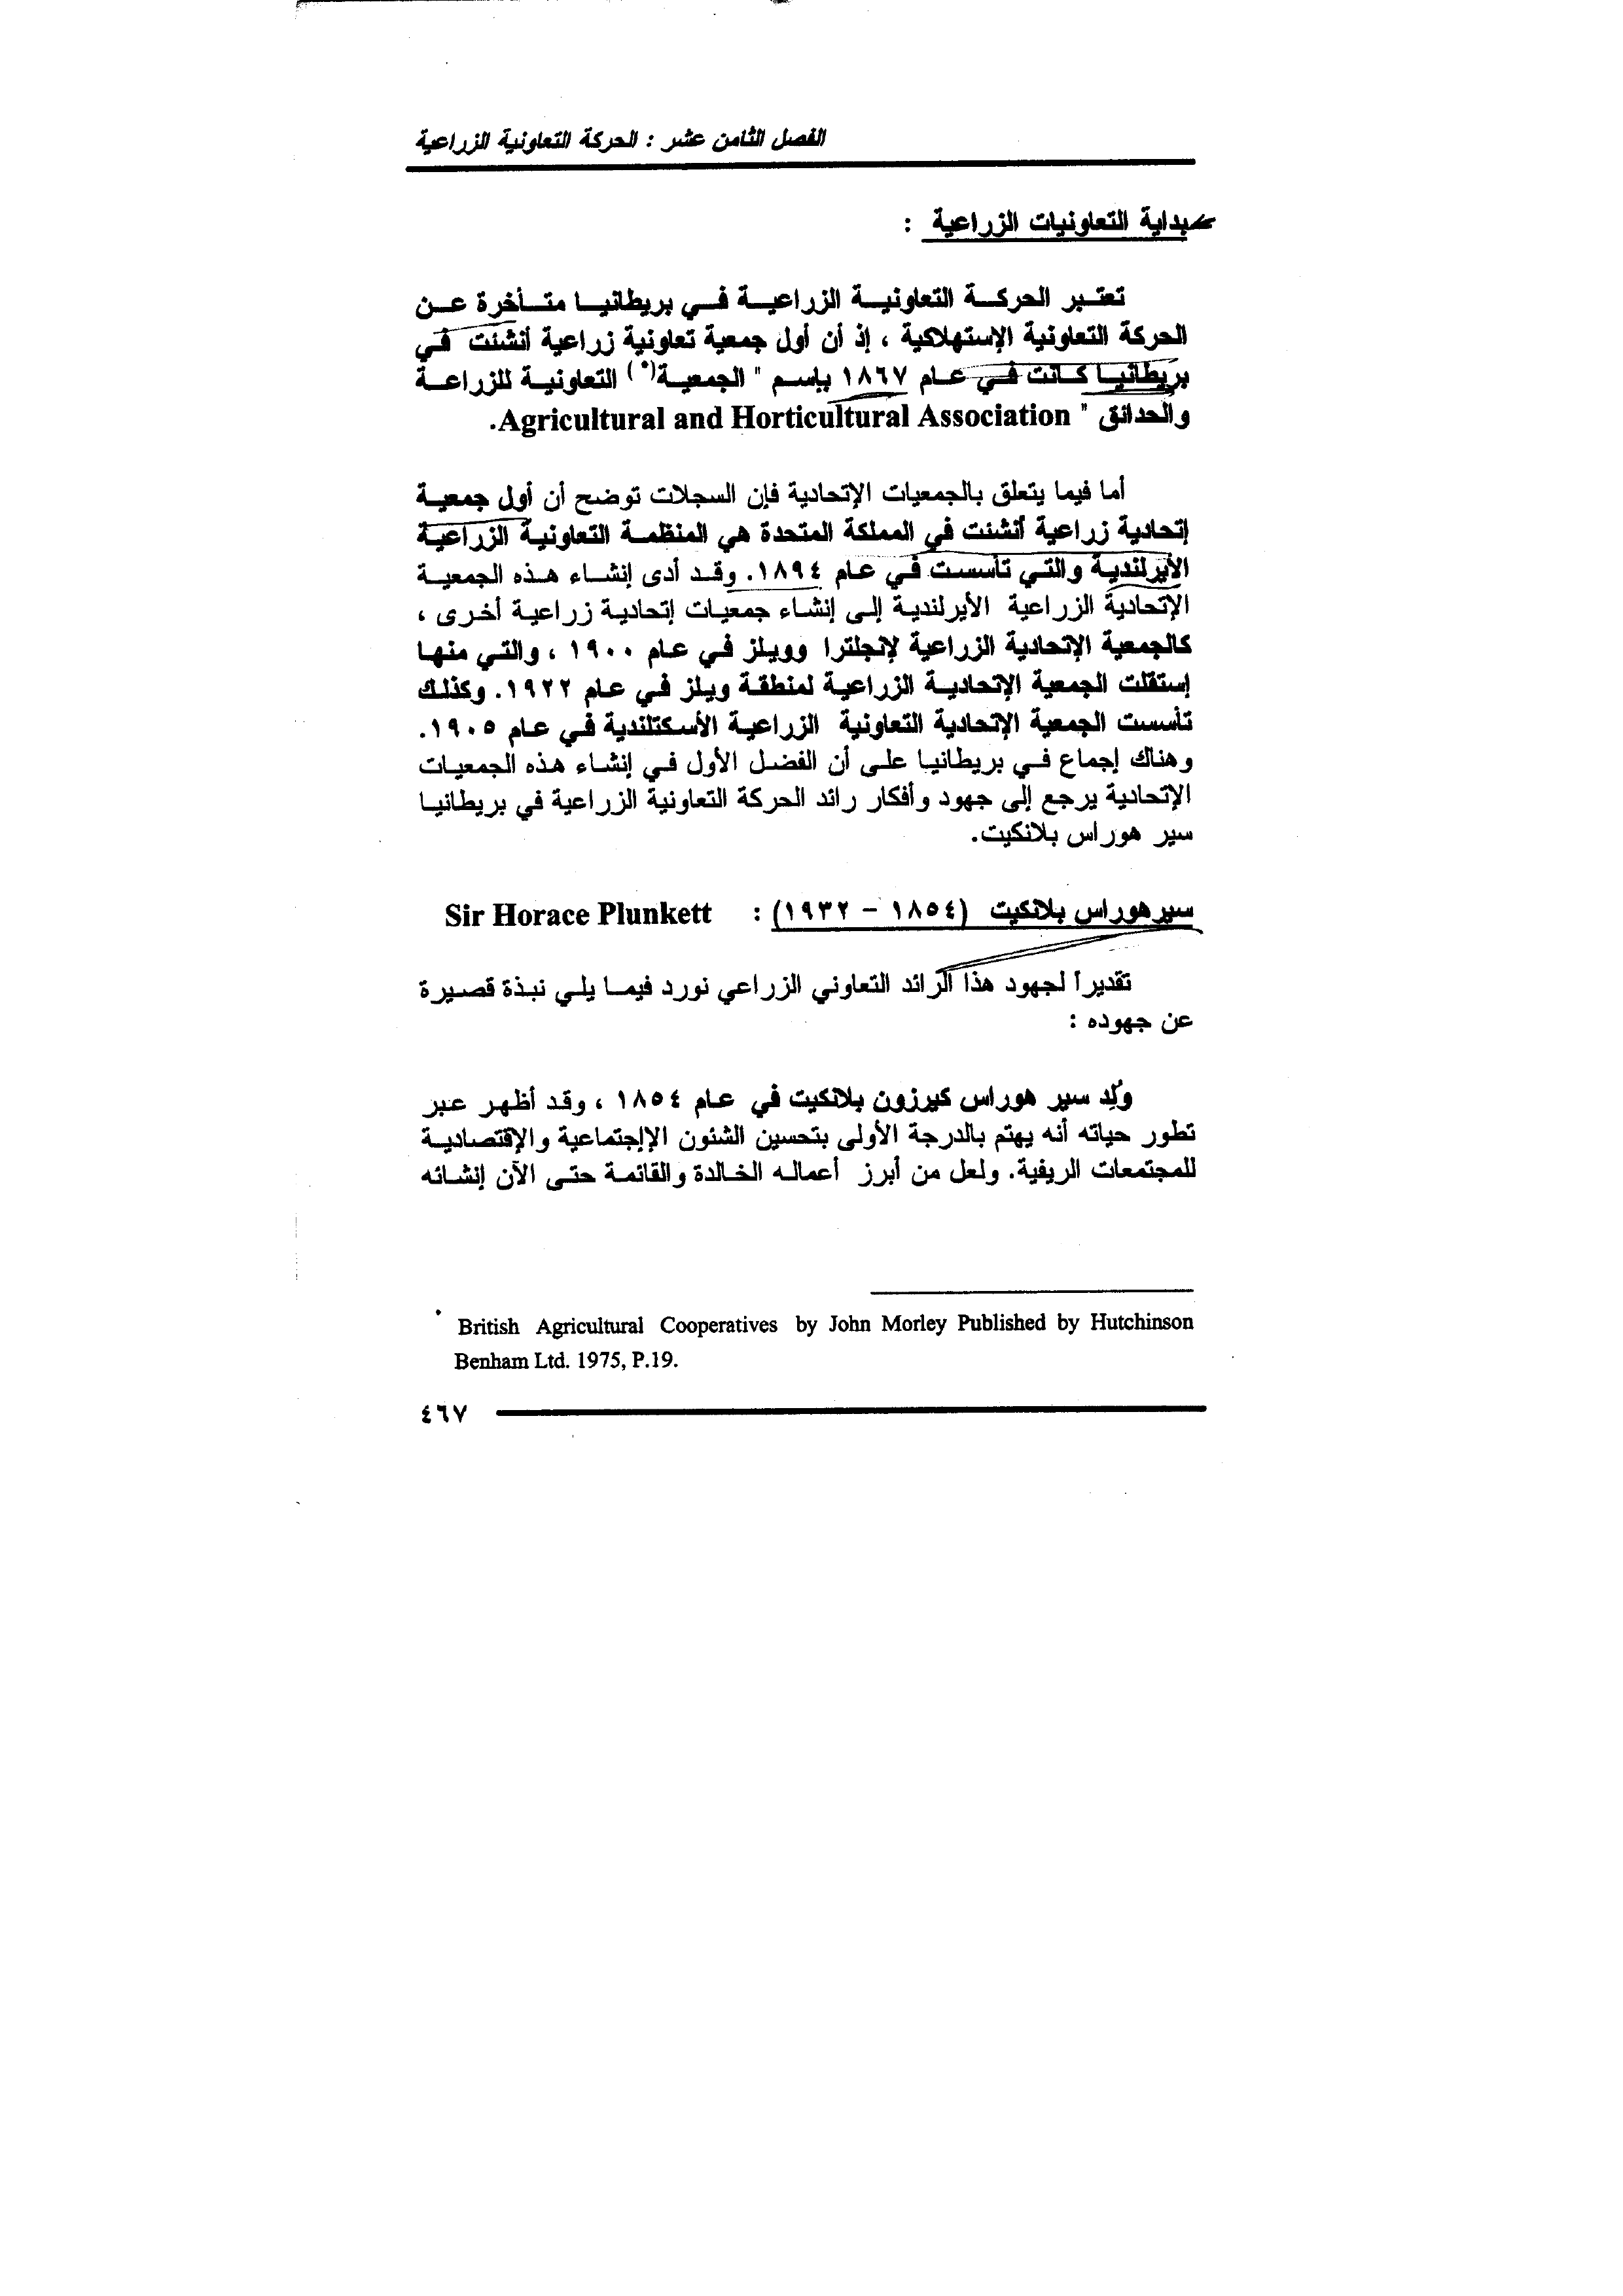 الفصل الثامن عشر : الحركة التعاونية الزراعية
بداية التعاونيات الزراعية :
تعتبر الحركة التعاونية الزراعية في بريطانيا متأخرة عن
الحركة التعاونية الإستهلاكية ، إذ أن أول جمعية تعاونية زراعية أنشئت في
بريطانيا كانت في عام ١٨٦٧ بإسم " الجمعية(*) التعاونية للزراعة
والحدائق " Agricultural and Horticultural Association.
أما فيما يتعلق بالجمعيات الإتحادية فإن السجلات توضح أن أول جمعية
إتحادية زراعية أنشئت في المملكة المتحدة هي المنظمة التعاونية الزراعية
الأيرلندية والتي تأسست في عام ١٨٩٤. وقد أدى إنشاء هذه الجمعية
الإتحادية الزراعية الأيرلندية إلى إنشاء جمعيات إتحادية زراعية أخرى ،
كالجمعية الإتحادية الزراعية لإنجلترا وويلز في عام ١٩٠٠ ، والتي منها
إستقلت الجمعية الإتحادية الزراعية لمنطقة ويلز في عام ١٩٢٢. وكذلك
تأسست الجمعية الإتحادية التعاونية الزراعية الأسكتلندية في عام ١٩٠٥.
وهناك إجماع في بريطانيا على أن الفضل الأول في إنشاء هذه الجمعيات
الإتحادية يرجع إلى جهود وأفكار رائد الحركة التعاونية الزراعية في بريطانيا
سير هوراس بلانكيت.
سير هوراس بلانكيت (١٨٥٤ - ١٩٣٢) : Sir Horace Plunkett
تقديراً لجهود هذا الرائد التعاوني الزراعي نورد فيما يلي نبذة قصيرة
عن جهوده :
وُلِد سير هوراس كيرزون بلانكيت في عام ١٨٥٤ ، وقد أظهر عبر
تطور حياته أنه يهتم بالدرجة الأولى بتحسين الشئون الإإجتماعية والإقتصادية
للمجتمعات الريفية. ولعل من أبرز أعماله الخالدة والقائمة حتى الآن إنشائه
* British Agricultural Cooperatives by John Morley Published by Hutchinson
Benham Ltd. 1975, P.19.
٤٦٧